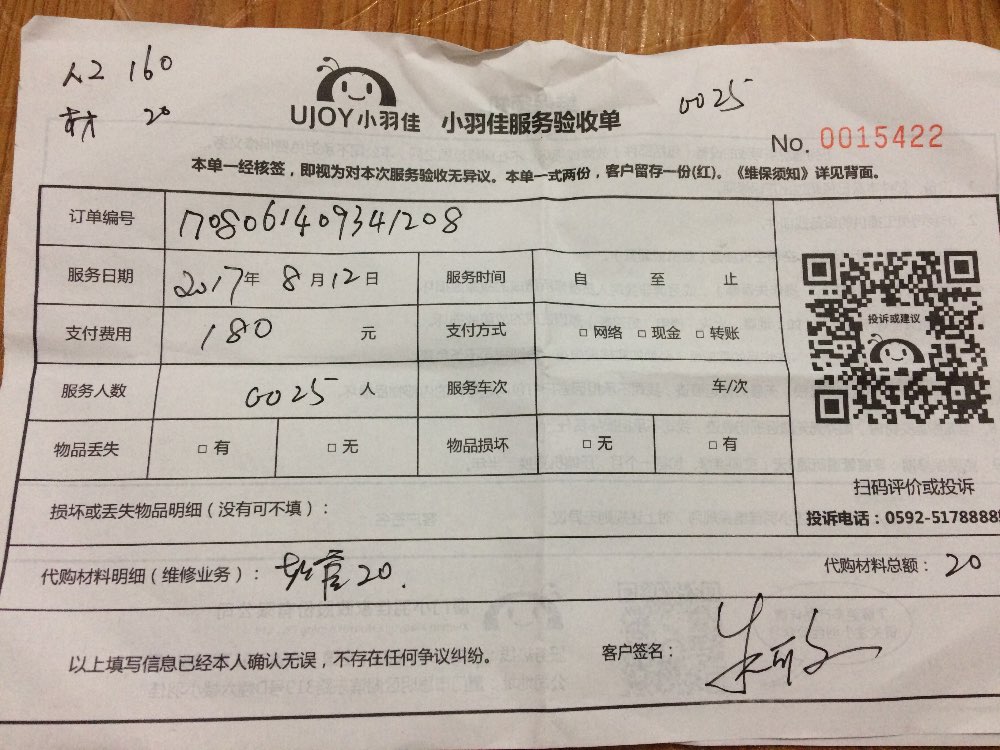 人工 160
材 20
0025
UJOY小羽佳 小羽佳服务验收单
No. 0015422
本单一经核签，即视为对本次服务验收无异议。本单一式两份，客户留存一份(红)。《维保须知》详见背面。
订单编号 1708061409341208
服务日期 2017年 8月12日 服务时间 自 至 止
支付费用 180 元 支付方式 □ 网络 □ 现金 □ 转账
服务人数 0025 服务车次 车/次
物品丢失 □ 有 □ 无 物品损坏 □ 无 □ 有
投诉或建议
扫码评价或投诉
投诉电话：0592-5178888
损坏或丢失物品明细（没有可不填）：
代购材料明细（维修业务）： 软管20. 代购材料总额： 20
以上填写信息已经本人确认无误，不存在任何争议纠纷。 客户签名：